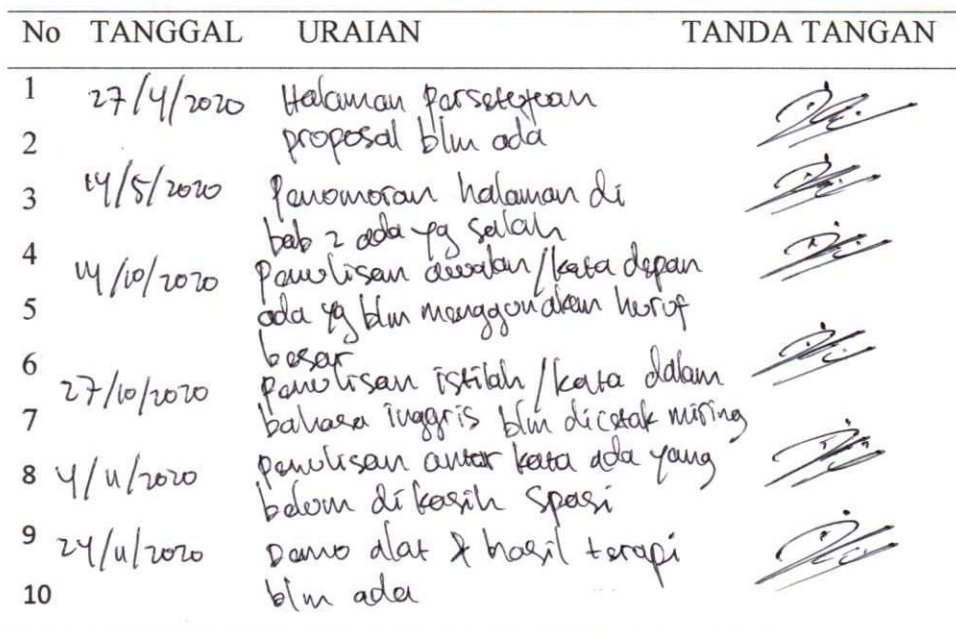 No TANGGAL URAIAN TANDA TANGAN
1 27/4/2020 Halaman Persetujuan
2 proposal blm ada
3 14/5/2020 Penomoran halaman di
bab 2 ada yg salah
4 14/10/2020 Penulisan awalan/kata depan
5 ada yg blm menggunakan huruf
besar
6 27/10/2020 penulisan istilah/kata dalam
7 bahasa inggris blm dicetak miring
8 4/11/2020 penulisan antar kata ada yang
belum di kasih spasi
9 24/11/2020 Demo alat & hasil terapi
10 blm ada